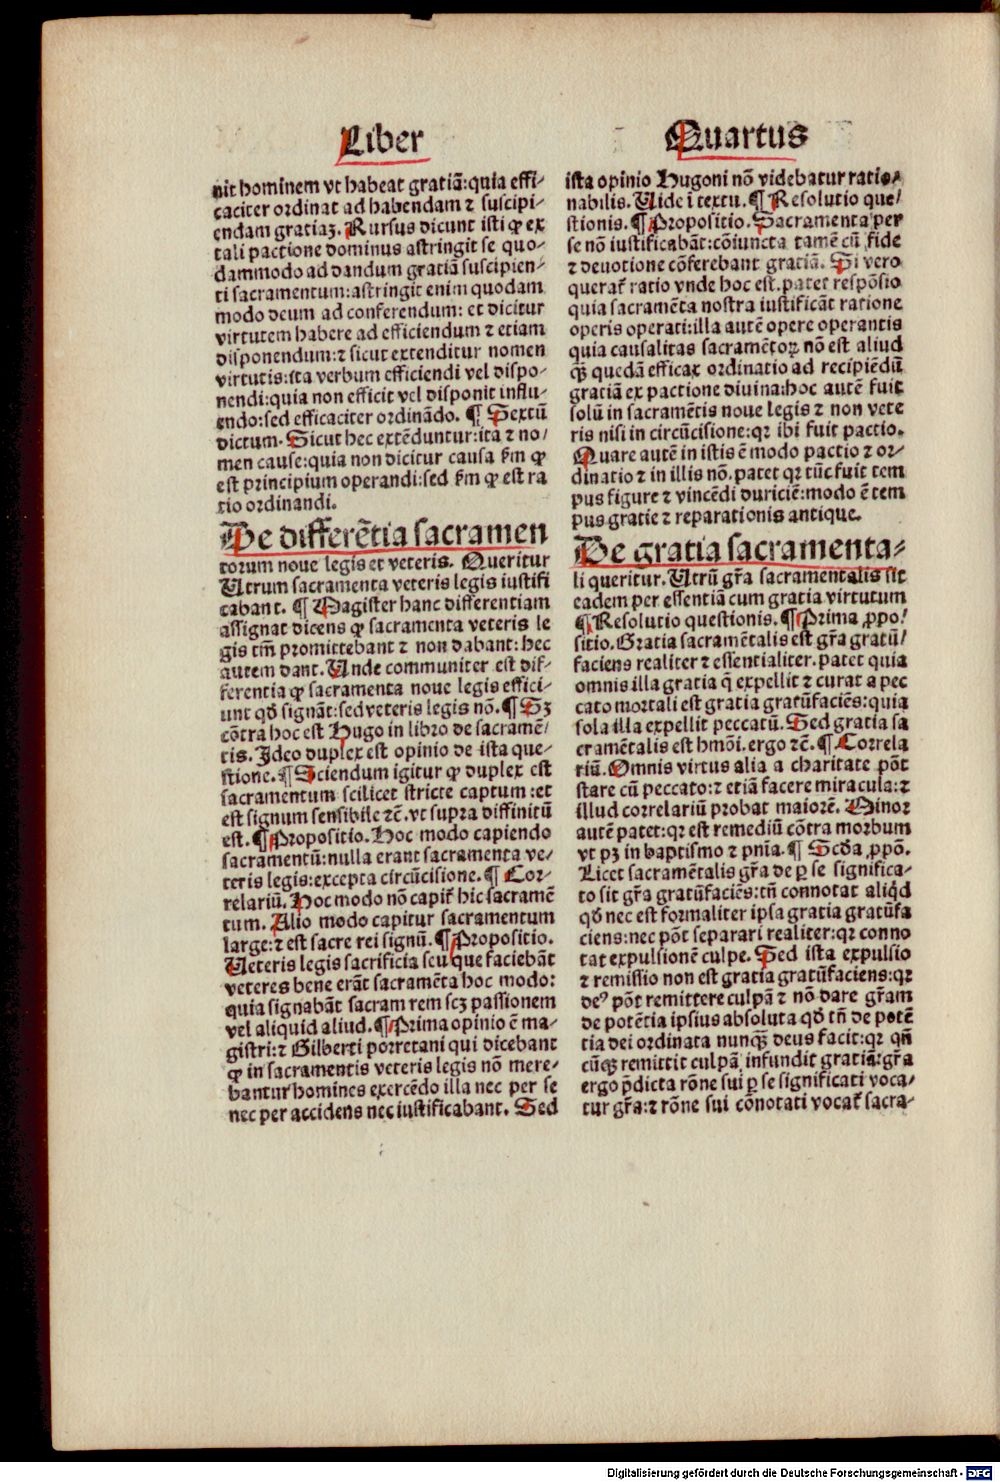 Liber
Quartus
nit hominem vt habeat gratiã: quia effi⸗
caciter ordinat ad habendam ⁊ suscipi⸗
endam gratiaꝫ. Rursus dicunt isti ꝙ ex
tali pactione dominus astringit se quo⸗
dammodo ad dandum gratiã suscipien⸗
ti sacramentum: astringit enim quodam
modo deum ad conferendum: et dicitur
virtutem habere ad efficiendum ⁊ etiam
disponendum: ⁊ sicut extenditur nomen
virtutis: ita verbum efficiendi vel dispo⸗
nendi: quia non efficit vel disponit influ⸗
endo: sed efficaciter ordinãdo. ¶ Sextũ
dictum. Sicut hec extẽduntur: ita ⁊ no⸗
men cause: quia non dicitur causa ẜm ꝙ
est principium operandi: sed ẜm ꝙ est ra
tio ordinandi.
De differẽtia sacramen
torum noue legis et veteris. Queritur
Utrum sacramenta veteris legis iustifi
cabant. ¶ Magister hanc differentiam
assignat dicens ꝙ sacramenta veteris le
gis tm̃ promittebant ⁊ non dabant: hec
autem dant. Unde communiter est dif⸗
ferentia ꝙ sacramenta noue legis effici⸗
unt qđ signãt: sed veteris legis nõ. ¶ Sꝫ
cõtra hoc est Hugo in libro de sacramẽ⸗
tis. Ideo duplex est opinio de ista que⸗
stione. ¶ Sciendum igitur ꝙ duplex est
sacramentum scilicet stricte captum: et
est signum sensibile ⁊c̃. vt supra diffinitũ
est. ¶ Propositio. Hoc modo capiendo
sacramentũ: nulla erant sacramenta ve⸗
teris legis: excepta circũcisione. ¶ Cor⸗
relariũ. Hoc modo nõ capit᷑ hic sacramẽ
tum. Alio modo capitur sacramentum
large: ⁊ est sacre rei signũ. ¶ Propositio.
Veteris legis sacrificia seu que faciebãt
veteres bene erãt sacramẽta hoc modo:
quia signabãt sacram rem scꝫ passionem
vel aliquid aliud. ¶ Prima opinio ẽ ma⸗
gistri: ⁊ Gilberti porretani qui dicebant
ꝙ in sacramentis veteris legis nõ mere⸗
bantur homines exercẽdo illa nec per se
nec per accidens nec iustificabant. Sed
ista opinio Hugoni nõ videbatur ratio⸗
nabilis. Uide ĩ textu. ¶ Resolutio que⸗
stionis. ¶ Propositio. Sacramenta per
se nõ iustificabãt: cõiuncta tamẽ cũ fide
⁊ deuotione cõferebant gratiã. Si vero
querat᷑ ratio vnde hoc est. patet respõsio
quia sacramẽta nostra iustificãt ratione
operis operati: illa autẽ opere operantis
quia causalitas sacramẽtoꝝ nõ est aliud
q̃ꝫ quedã efficax ordinatio ad recipiẽdũ
gratiã ex pactione diuina: hoc autẽ fuit
solũ in sacramẽtis noue legis ⁊ non vete
ris nisi in circũcisione: qꝛ ibi fuit pactio.
Quare autẽ in istis ẽ modo pactio ⁊ or⸗
dinatio ⁊ in illis nõ. patet qꝛ tũc fuit tem
pus figure ⁊ vincẽdi duriciẽ: modo ẽ tem
pus gratie ⁊ reparationis antique.
De gratia sacramenta⸗
li queritur. Utrũ gr̃a sacramentalis sit
eadem per essentiã cum gratia virtutum
¶ Resolutio questionis. ¶ Prima ꝓpo⸗
sitio. Gratia sacramẽtalis est gr̃a gratũ⸗
faciens realiter ⁊ essentialiter. patet quia
omnis illa gratia q̃ expellit ⁊ curat a pec
cato mortali est gratia gratũfaciẽs: quia
sola illa expellit peccatũ. Sed gratia sa
cramẽtalis est hmõi. ergo ⁊c̃. ¶ Correla
riũ. Omnis virtus alia a charitate põt
stare cũ peccato: ⁊ etiã facere miracula: ⁊
illud correlariũ probat maiorẽ. Minor
autẽ patet: qꝛ est remediũ cõtra morbum
vt pꝫ in baptismo ⁊ pnĩa. ¶ Scđa ꝓpõ.
Licet sacramẽtalis gr̃a de ꝑ se significa⸗
to sit gr̃a gratũfaciẽs: tñ connotat aliqͥd
qđ nec est formaliter ipsa gratia gratũfa
ciens: nec põt separari realiter: qꝛ conno
tat expulsionẽ culpe. Sed ista expulsio
⁊ remissio non est gratia gratũfaciens: qꝛ
deꝰ põt remittere culpã ⁊ nõ dare gr̃am
de potẽtia ipsius absoluta qđ tñ de potẽ
tia dei ordinata nunq̃ꝫ deus facit: qꝛ qñ
cũqꝫ remittit culpã infundit gratiã: gr̃a
ergo p̃dicta rõne sui ꝑ se significati voca⸗
tur gr̃a: ⁊ rõne sui cõnotati vocat᷑ sacra⸗
Digitalisierung gefördert durch die Deutsche Forschungsgemeinschaft - DFG